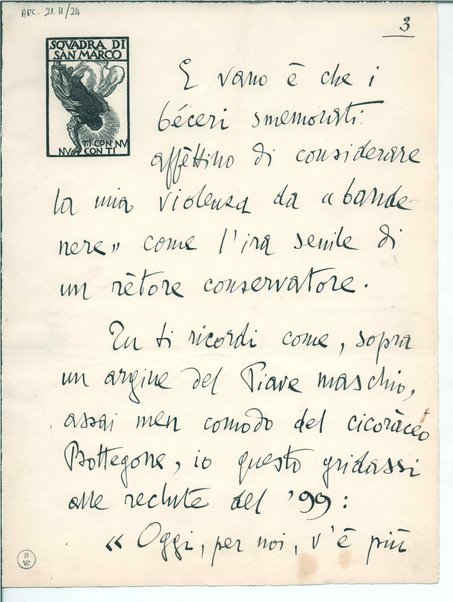 ARC. 21.11/24
3
SQVADRA DI
SAN MARCO
TI CON NV
NV CON TI
E vano è che i
béceri smemorati
affèttino di considerare
la mia violenza da «bande
nere» come l'ira senile di
un rètore conservatore.
Tu ti ricordi come, sopra
un argine del Piave maschio,
assai men comodo del cicoràceo
Bottegone, io questo gridassi
alle reclute del '99:
« Oggi, per noi, v'è più
B